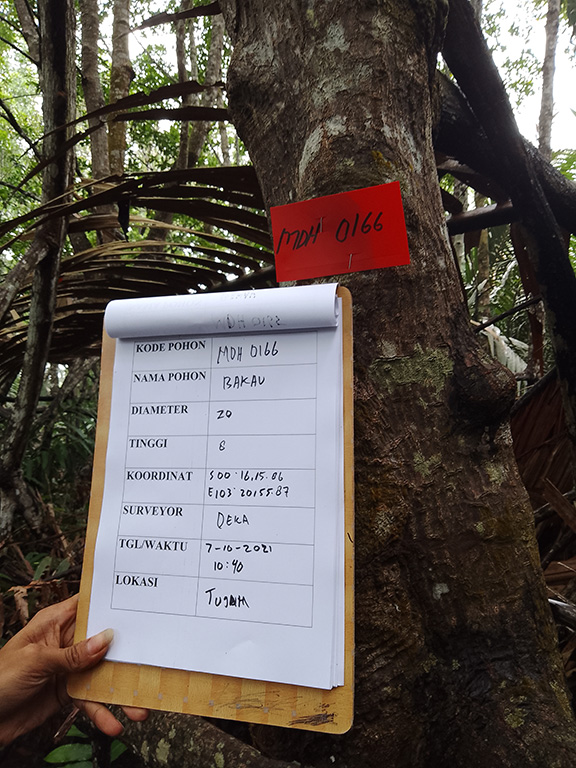 MDH 0166
KODE POHON MDH 0166
NAMA POHON BAKAU
DIAMETER 20
TINGGI 6
KOORDINAT S 00°.16.15.06
E103°.20155.87
SURVEYOR DEKA
TGL/WAKTU 7-10-2021
10:40
LOKASI